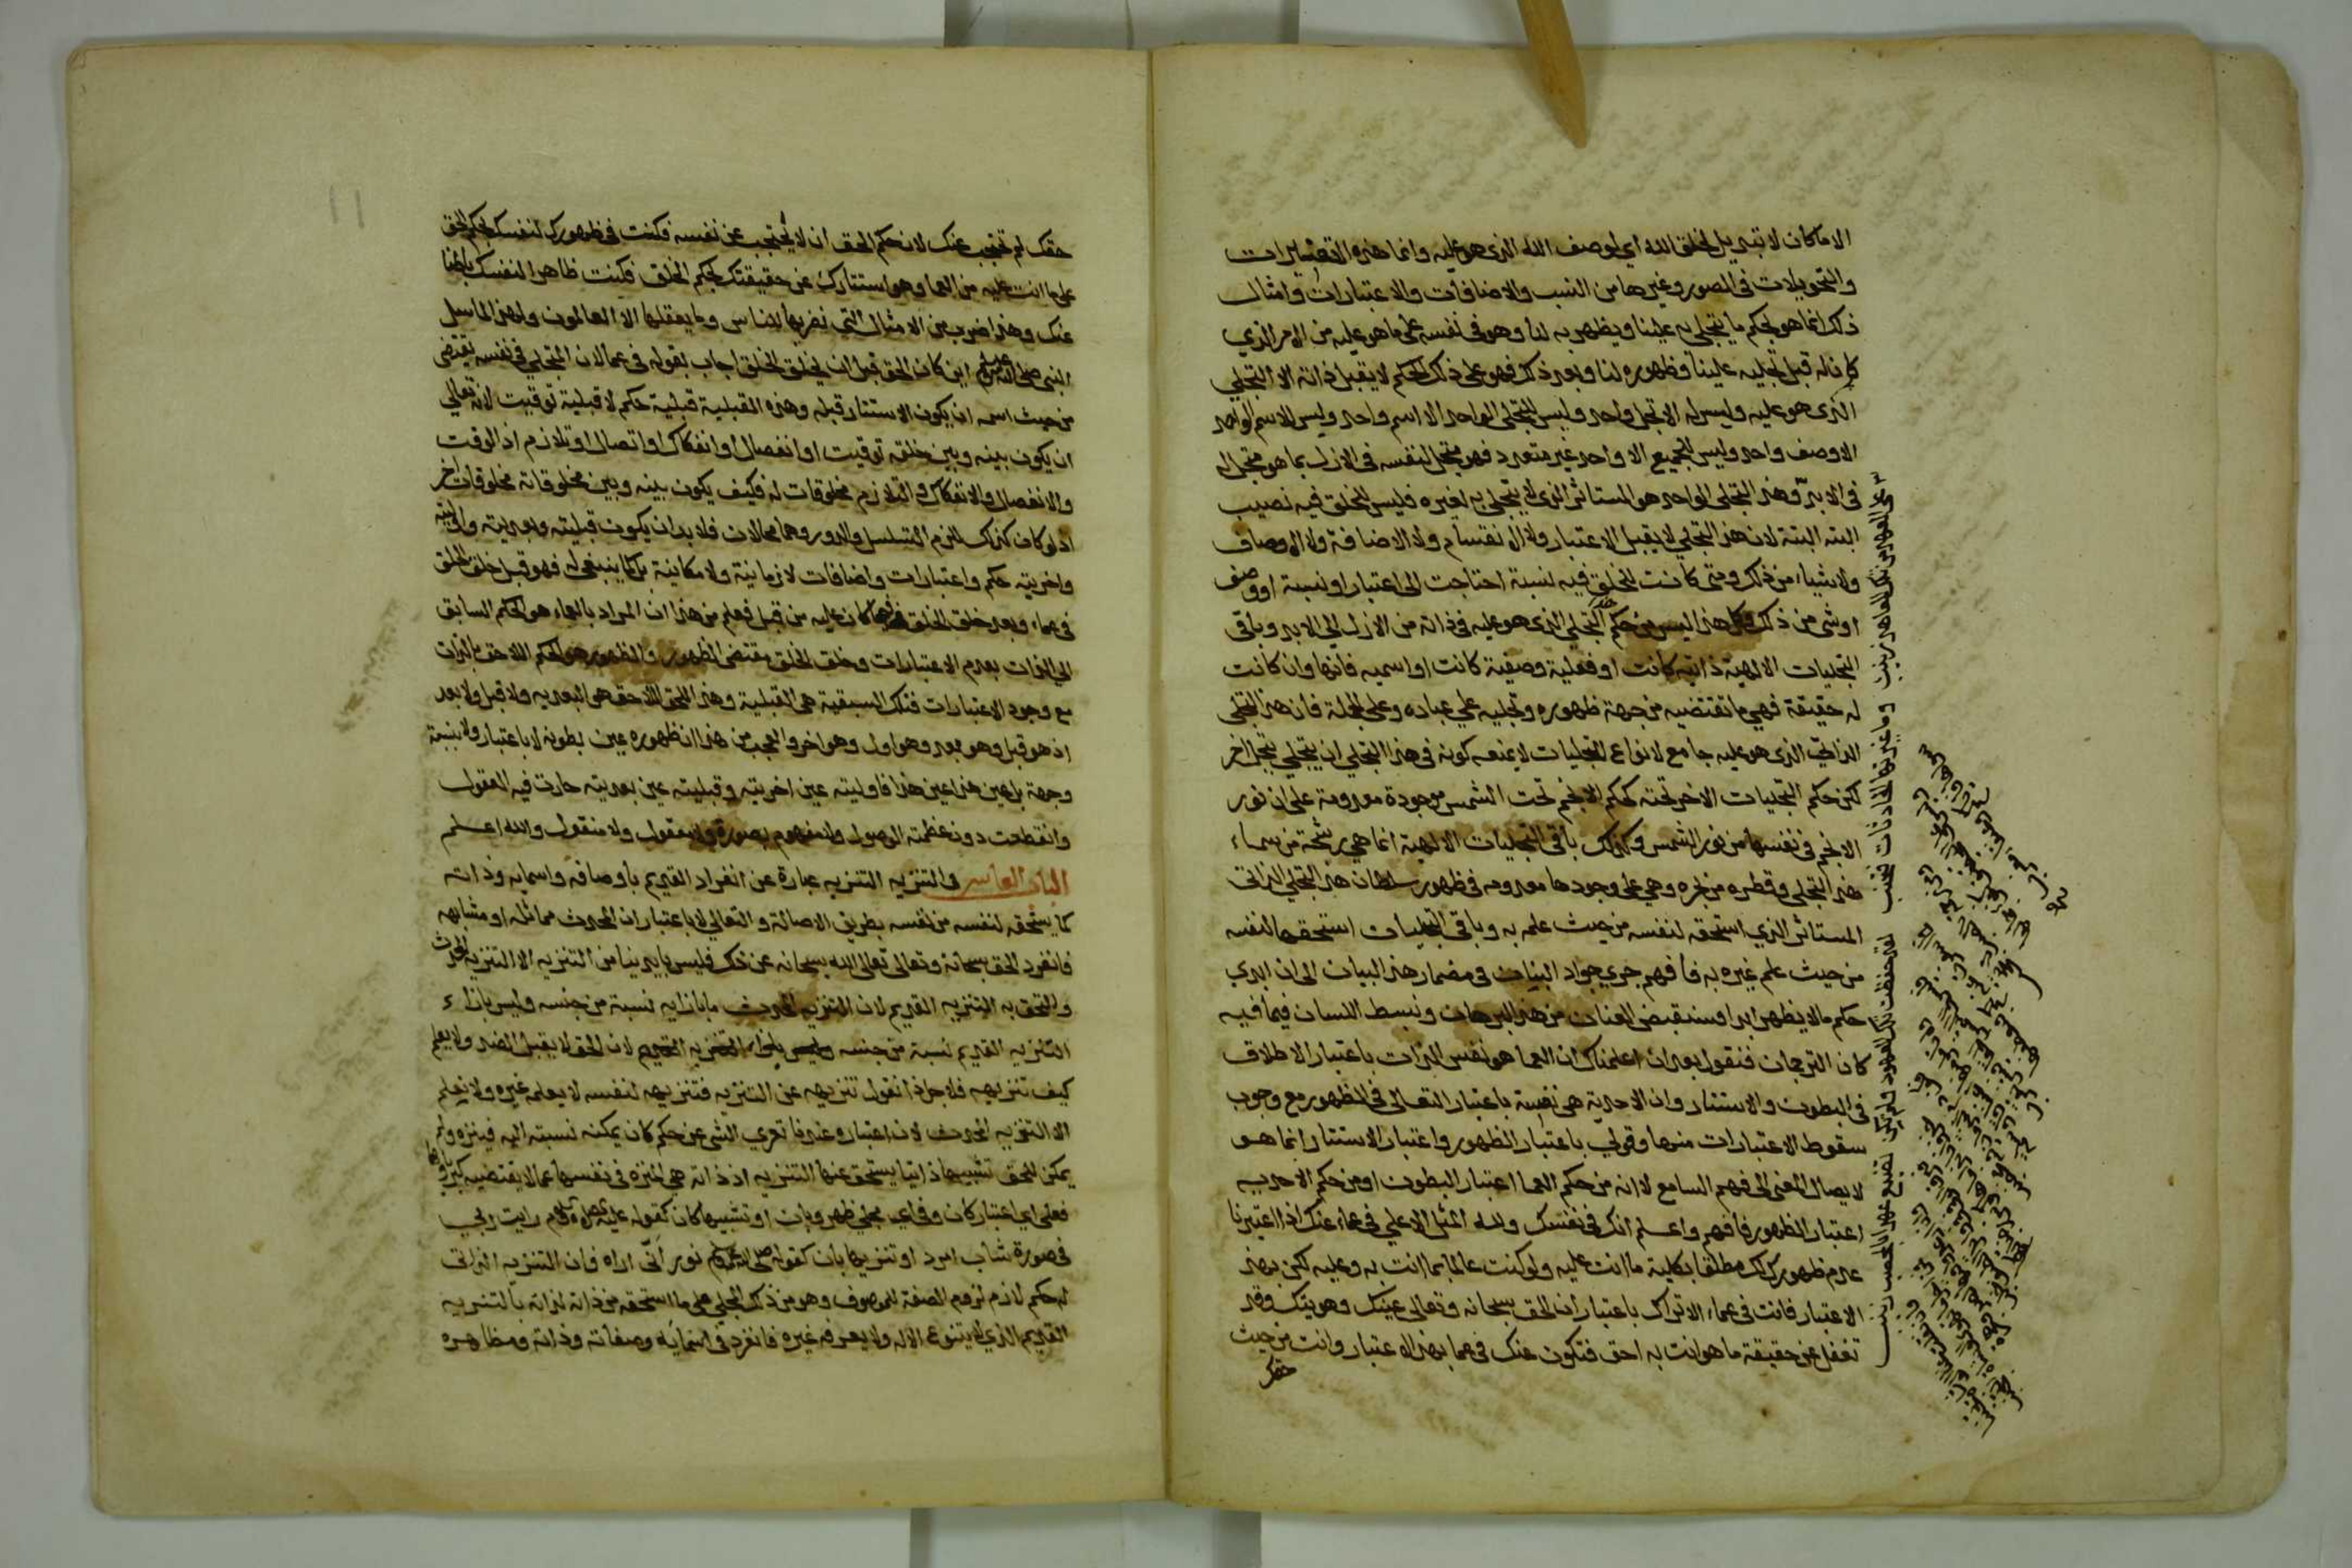 الاماكان لا تبديل لخلق الله اي لوصف الله الذى هو عليه وانما هذه التغييرات
والتحويلات فى الصور وغيرها من النسب والاضافات والاعتبارات وامثال
ذلك انما هو بحكم ما يتجلى به علينا ويظهر به لنا وهو فى نفسه على ما هو عليه من الامر الذي
كان له قبل تجليه علينا وظهوره لنا وبعد ذلك فهو على ذلك الحكم لا يقبل ذاته الا التجلي
الذى هو عليه وليس له الا تجل واحد وليس للتجلى الواحد الا اسم واحد وليس للاسم الواحد
الا وصف واحد وليس للجميع الا واحد غير متعدد فهو متجل لنفسه فى الازل بما هو متجل له
فى الابد وهذا التجلى الواحد هو المستاثر الذى لا يتجلى به لغيره فليس للخلق فيه نصيب
البته البتة لان هذا التجلي لا يقبل الاعتبار ولا الانقسام ولا الاضافة ولا الاوصاف
ولا شياء من ذلك ومتى كانت للخلق فيه نسبة احتاجت الى اعتبار او نسبة او وصف
او شى من ذلك وكل هذا ليس من حكم التجلي الذى هو عليه فى ذاته من الازل الي الابد وباقى
التجليات الالهية ذاتيه كانت او فعلية وصفية كانت او اسميه فانها وان كانت
له حقيقة فهي ما تقتضيه من جهة ظهوره وتجليه علي عباده وعلى الجملة فان هذا التجلي
الذاتي الذى هو عليه جامع لانواع التجليات لا يمنعه كونه فى هذا التجلي ان يتجلي بتجل اخر
لكن حكم التجليات الاخر تحته كحكم الانجم تحت الشمس موجودة معدومة على ان نور
الانجم فى نفسها من نور الشمس وكذلك باقى التجليات الالهية انما هي رشحة من سماء
هذا التجلى وقطره من بحره وهي على وجودها معدومه فى ظهور سلطان هذا التجلي الذاتى
المستاثر الذي استحقه لنفسه من حيث علمه به وباقى التجليات استحقها لنفسه
من حيث علم غيره به فافهم جرى جواد البنان فى مضمار هذا البيان الى ان ابدى
حكم مالا يظهر ابدا فسنقبض العنان من هذا البرهان ونبسط اللسان فيما فيه
كان الترجمان فنقول بعد ان اعلمناك ان العما هو نفس الذات باعتبار الاطلاق
فى البطون والاستتار وان الاحدية هى نفسية باعتبار التعالى فى الظهور مع وجوب
سقوط الاعتبارات منها وقولي باعتبار الظهور واعتبار الاستتار انما هو
لايصال المعنى الى فهم السامع لا انه من حكم العما اعتبار البطون او من حكم الاحديه
اعتبار الظهور فافهم واعلم انك فى نفسك ولله المثل الاعلي فى عماء عنك اذا اعتبرنا
عدم ظهورك لك مطلقا بكلية ما انت عليه ولو كنت عالما بما انت به وعليه لكن بهذا
الاعتبار فانت فى عماء الا تراك باعتبار ان الحق سبحانه وتعالى عينك وهويتك وقد
تغفل عن حقيقة ما هو انت به احق فتكون عنك فى عما بهذا الاعتبار وانت من حيث
حقك
حقك لم تحتجب عنك لان حكم الحق ان لا يحتجب عن نفسه فكنت فى ظهورك لنفسك بحكم الحق
على ما انت عليه من العما وهو استتارك عن حقيقتك بحكم الخلق فكنت ظاهرا لنفسك باطنا
عنك وهذا ضرب من الامثال التي نضربها للناس وما يعقلها الا العالمون ولهذا لما سيل
النبى صلى الله عليه وسلم اين كان الحق قبل ان يخلق الخلق اجاب بقوله فى عما لان المتجلي فى نفسه يقتضى
من حيث اسمه ان يكون الاستتار قبله وهذه القبلية قبلية حكم لا قبلية توقيت لانه تعالي
ان يكون بينه وبين خلقه توقيت او انفصال او انفكاك او اتصال او تلازم اذ الوقت
والانفصال والانفكاك والتلازم مخلوقات له فكيف يكون بينه وبين مخلوقاته مخلوقات اخر
اذ لو كان كذلك للزم التسلسل والدور وهما محالان فلا بد ان يكون قبليته وبعديته واوليته
واخريته حكم واعتبارات واضافات لا زمانية ولا مكانية بل كما ينبغى له فهو قبل خلق الخلق
فى عماء وبعد خلق الخلق كان عليه من قبل فعلم من هذا ان المراد بالعماء هو الحكم السابق
الي الذات بعدم الاعتبارات وخلق الخلق مقتضى الظهور والظهور هو الحكم اللاحق بالذات
مع وجود الاعتبارات فتلك السبقية هى القبلية وهذا اللحق اللاحق هو البعديه ولا قبل ولا بعد
اذ هو قبل وهو بعد وهو اول وهو اخر والعجب من هذا ان ظهوره عين بطونه لا باعتبار ولا نسبة
وجهة بل عين هذا عين هذا فاوليته عين اخريته وقبليته عين بعديته حارت فيه العقول
وانقطعت دون عظمته الوصول ولا مفهوم بصورة ولا معقول ولا منقول والله اعلم
الباب العاشر فى التنزيه التنزيه عبارة عن انفراد القديم باوصافه واسمايه وذاته
كما يستحقه لنفسه من نفسه بطريق الاصالة والتعالي لا باعتبار ان المحدث مماثله او مشابهه
فانفرد الحق سبحانه وتعالى تعالى الله سبحانه عن ذلك فليس بايدينا من التنزيه الا التنزيه المحدث
والتحق به التنزيه القديم لان التنزيه المحدث ما بازايه نسبة من جنسه وليس بازاء
التنزيه القديم نسبة من جنسه لان الحق لا يقبل الضد ولا يعلم
كيف تنزيهه فلاجل ذا نقول تنزيهه عن التنزيه فتنزيهه لنفسه لا يعلمه غيره ولا نعلم
الا التنزيه المحدث لان اعتباره عندنا تعري الشى عن حكم كان يمكنه نسبته اليه فينزه ولم
يمكن للحق تشبيها ذاتيا يستحق عنها التنزيه اذ ذاته هي المنزه فى نفسها عما لا يقتضيه كبرياوها
فعلى اى اعتبار كان وفى اي مجلى ظهر وبان او تشبيها كان كقوله عليه رايت ربي
فى صورة شاب امرد او تنزيها بان كقوله صلى الله عليه وسلم نور انى اراه فان التنزيه الذاتى
له حكم لازم لزوم الصفة للموصوف وهو من ذلك المجلي على ما استحقه من ذاته لذاته بالتنزيه
القديم الذي لا يتنوع الا له ولا يعرفه غيره فانفرد فى اسمايه وصفاته وذاته ومظاهره